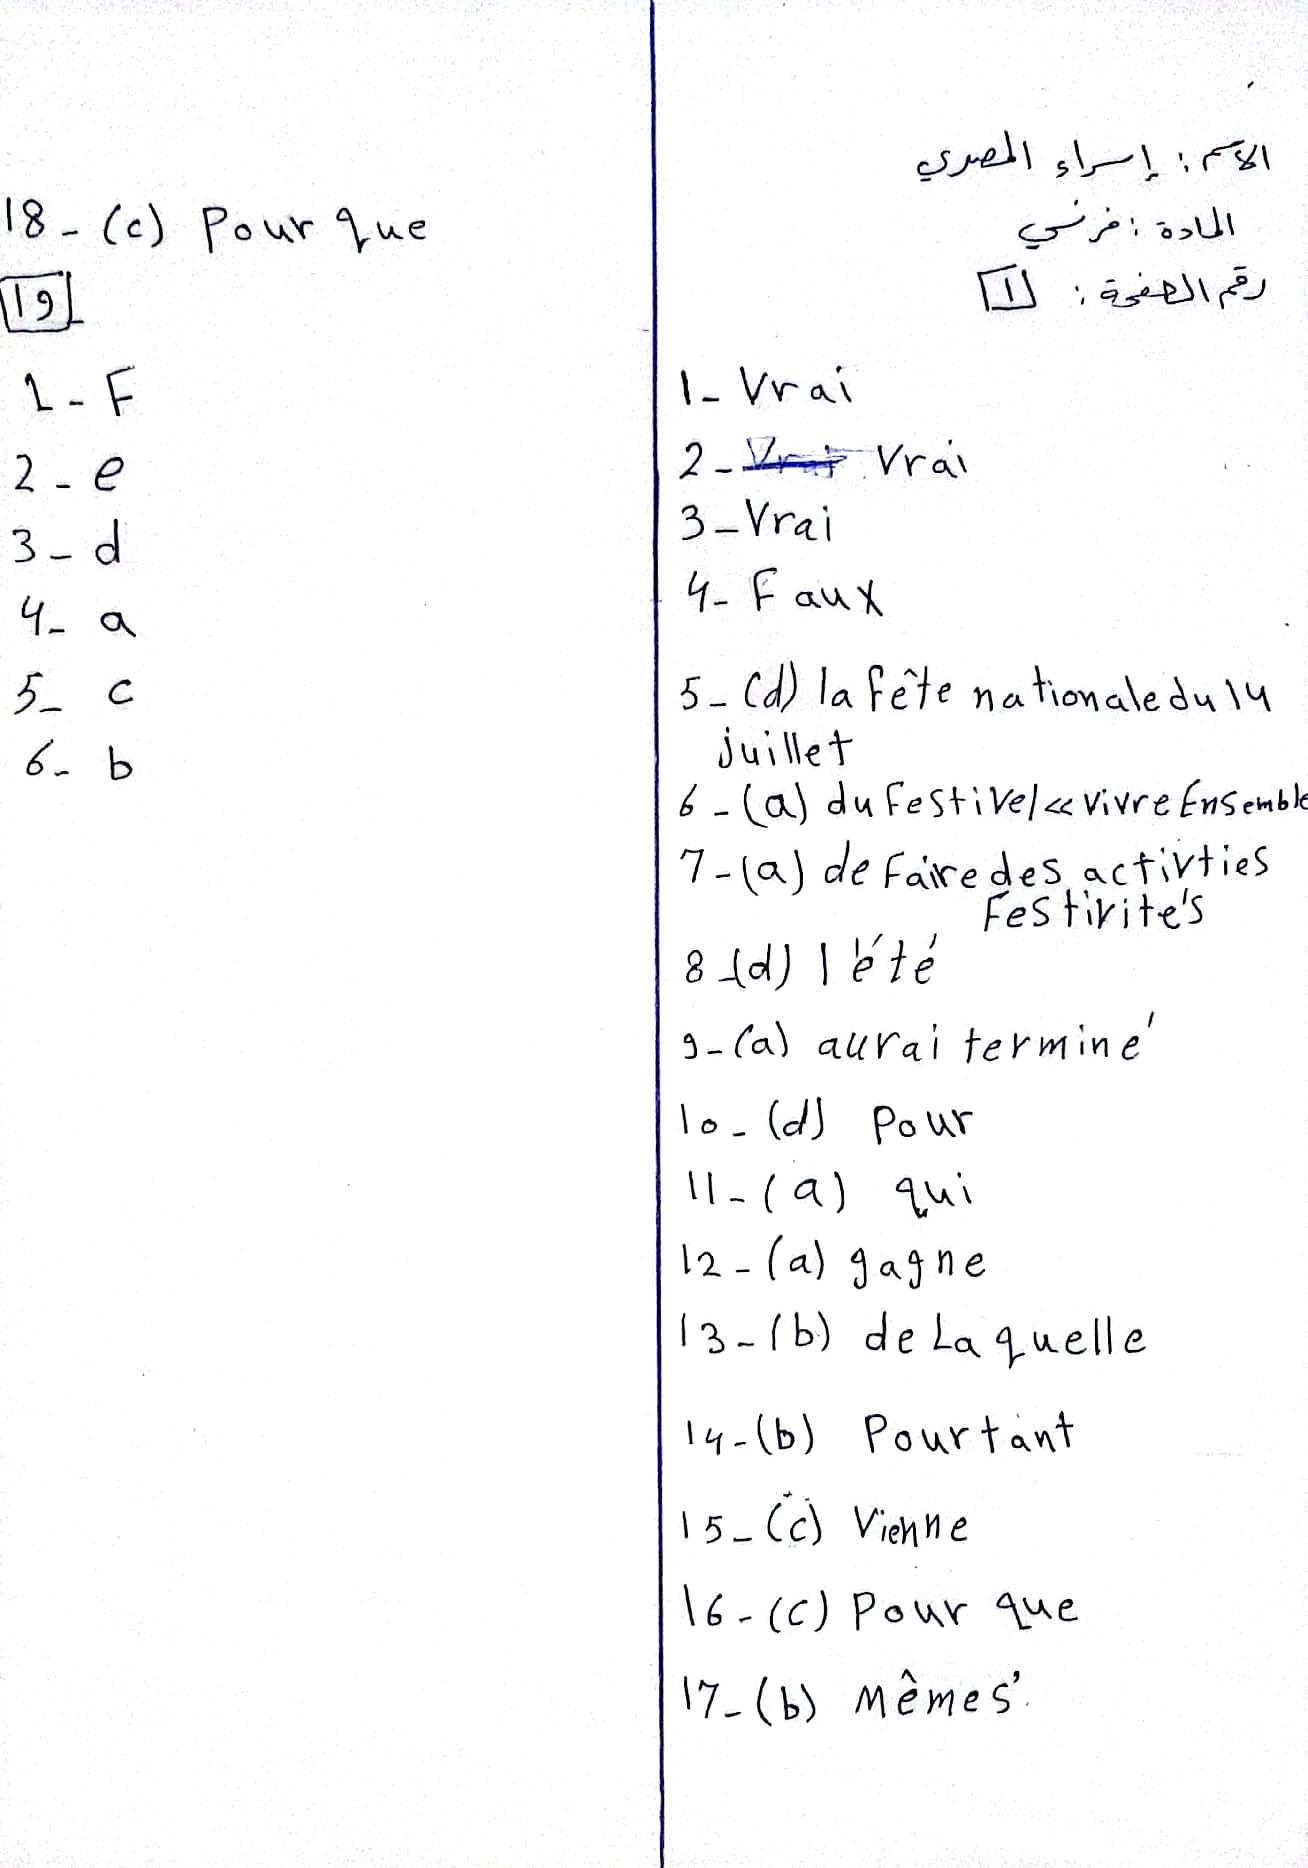 الاسم : إسراء المصري
المادة : فرنسي
رقم الصفحة : 1
1- Vrai
2- Vrai Vrai
3- Vrai
4- Faux
5- (d) la fête nationale du 14
juillet
6 - (a) du Festivel « vivre Ensemble
7 - (a) de Faire des activties
Festivite's
8 - (d) l'été
9 - (a) aurai terminé
10 - (d) Pour
11 - (a) qui
12 - (a) gagne
13 - (b) de Laquelle
14 - (b) Pourtant
15 - (c) Vienne
16 - (c) Pour que
17 - (b) Mêmes
18 - (c) Pour que
19
1 - F
2 - e
3 - d
4 - a
5 - c
6 - b